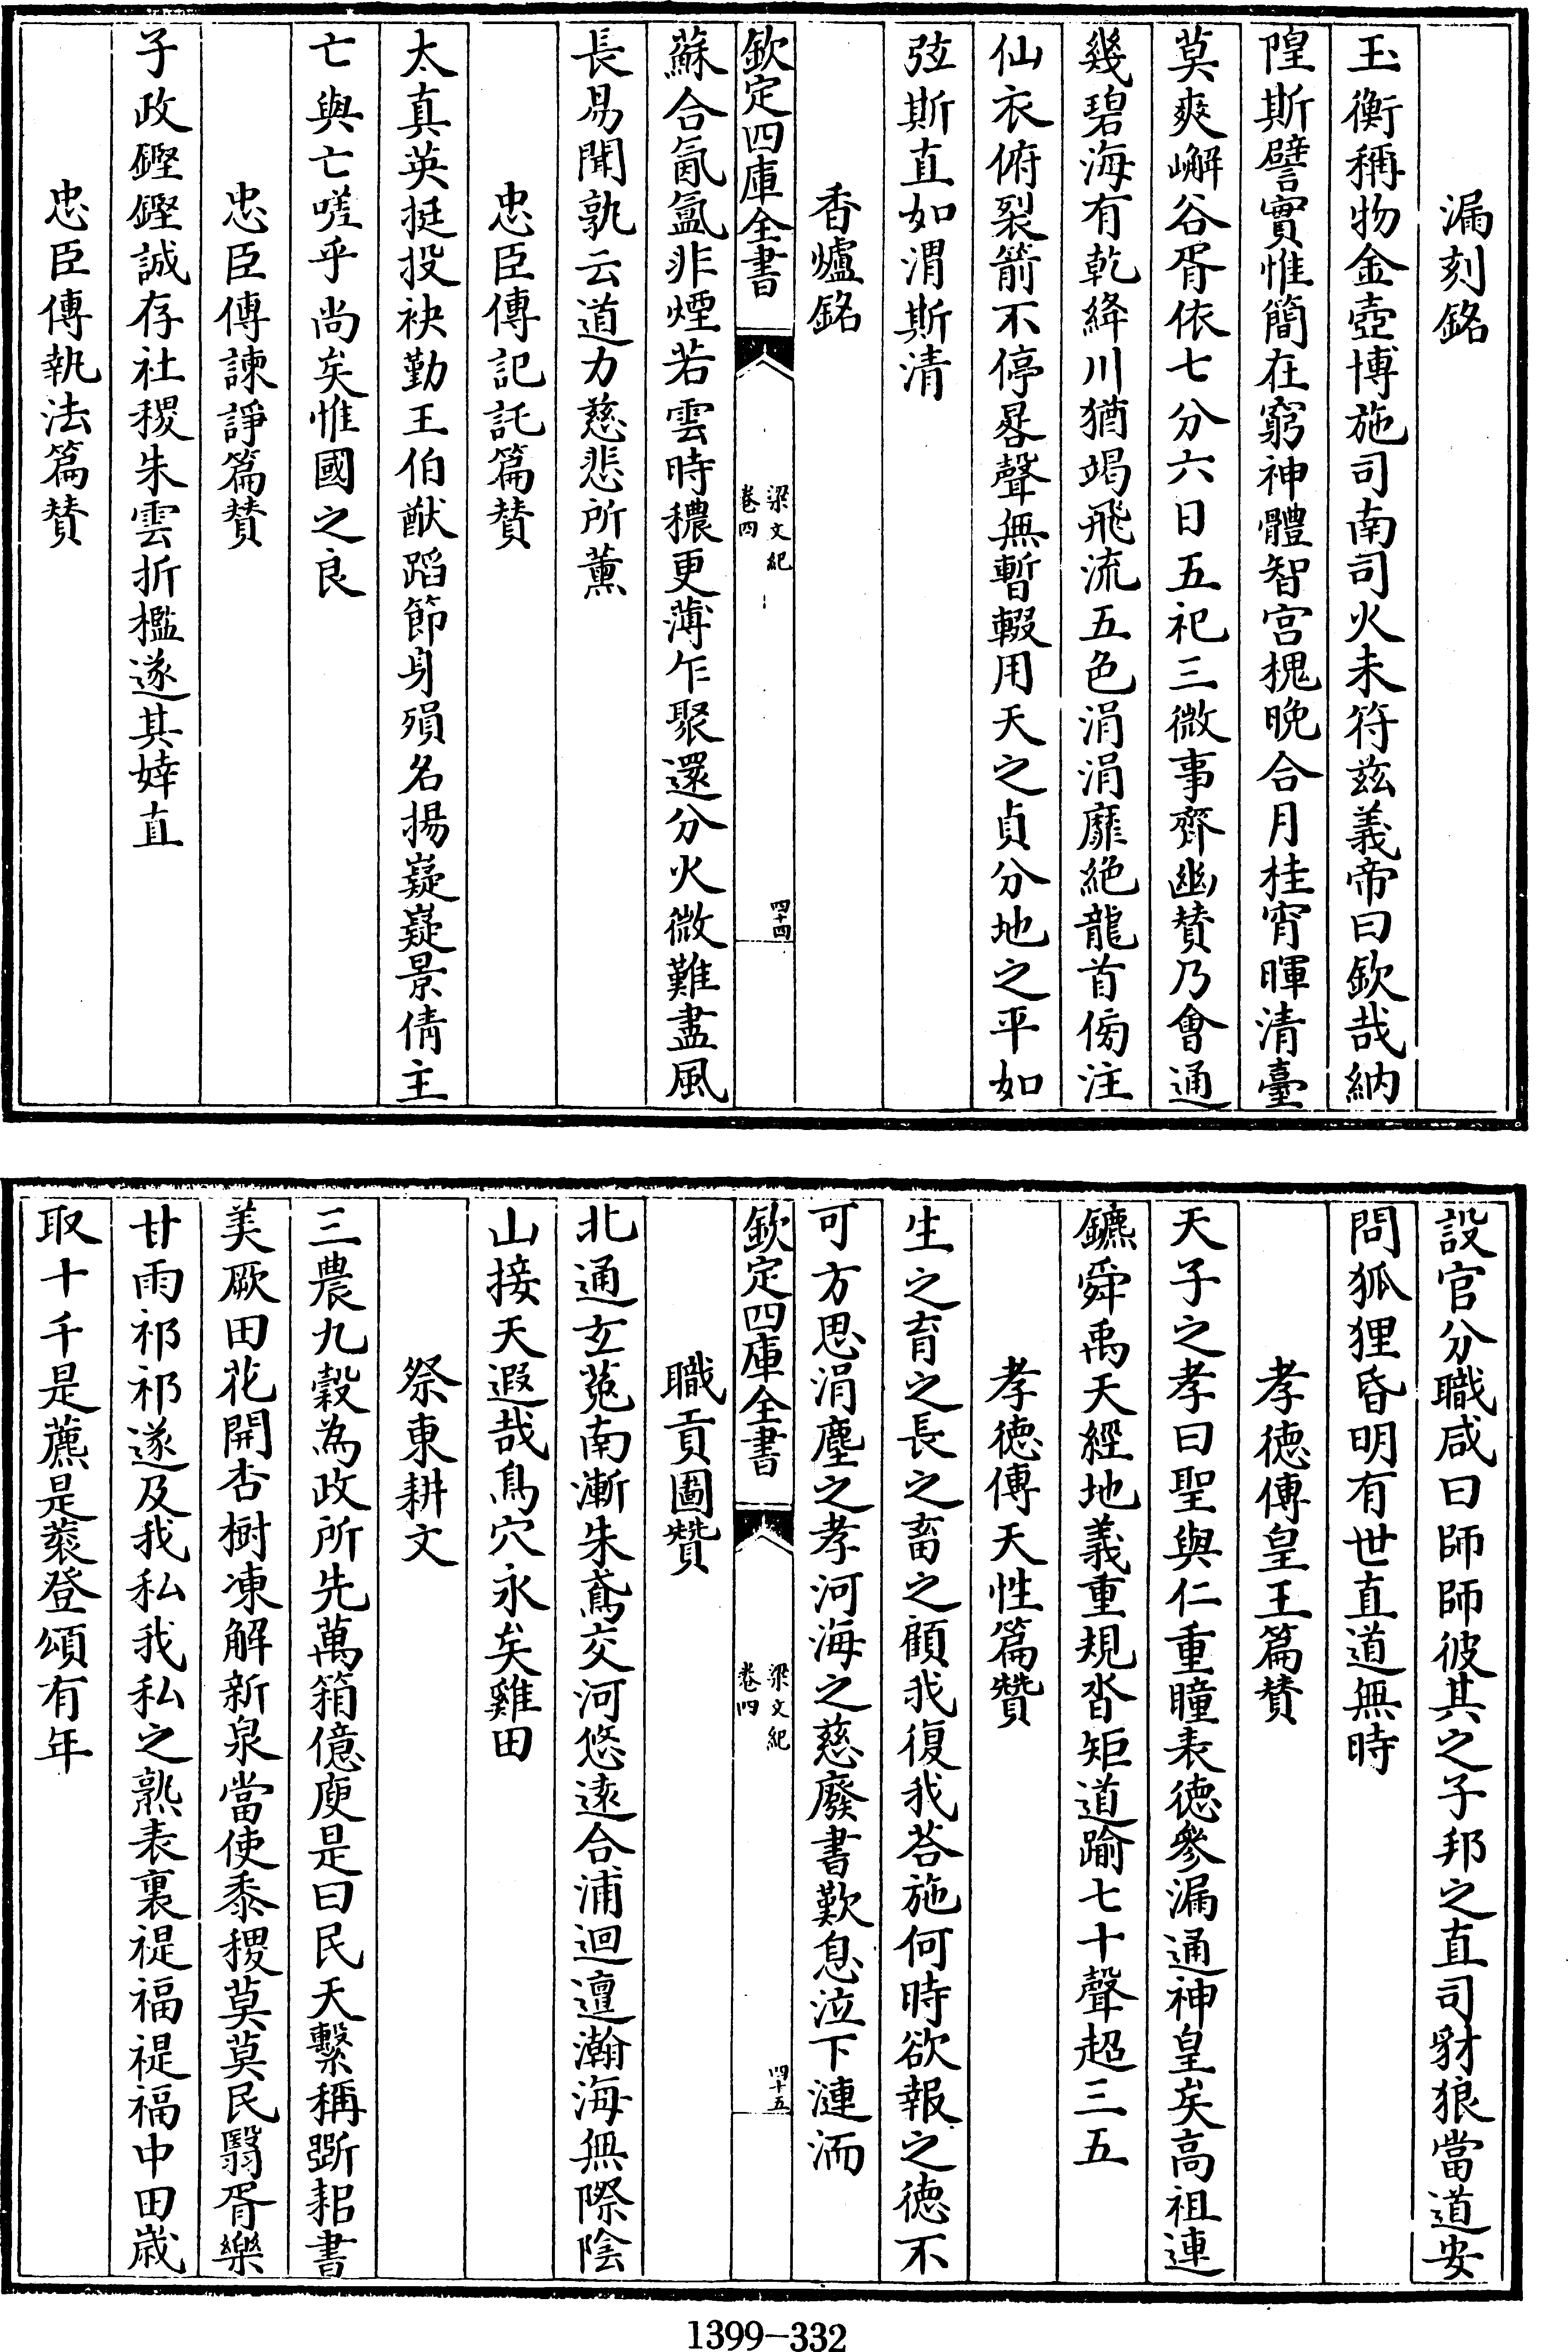 漏刻銘
玉衡稱物金壺博施司南司火未符兹義帝曰欽哉納
隍斯譬實惟簡在窮神體智宫槐晚合月桂宵暉清臺
莫爽嶰谷胥依七分六日五祀三微事齊幽賛乃會通
幾碧海有乾絳川猶竭飛流五色涓涓靡絶龍首傍注
仙衣俯裂箭不停晷聲無暫輟用天之貞分地之平如
弦斯直如渭斯清
香爐銘
欽定四庫全書
梁文紀
卷四
四十四
蘇合氤氳非煙若雲時穠更薄乍聚還分火微難盡風
長易聞孰云道力慈悲所薰
忠臣傳記託篇賛
太真英挺投袂勤王伯猷蹈節身殞名揚嶷嶷景倩主
亡與亡嗟乎尚矣惟國之良
忠臣傳諫諍篇賛
子政鏗鏗誠存社稷朱雲折檻遂其婞直
忠臣傳執法篇賛
設官分職咸曰師師彼其之子邦之直司豺狼當道安
問狐狸昏明有世直道無時
孝徳傳皇王篇賛
天子之孝曰聖與仁重瞳表徳參漏通神皇矣高祖連
鑣舜禹天經地義重規沓矩道踰七十聲超三五
孝徳傳天性篇贊
生之育之長之畜之顧我復我荅施何時欲報之徳不
可方思涓塵之孝河海之慈廢書歎息泣下漣洏
職貢圖贊
欽定四庫全書
梁文紀
卷四
四十五
北通玄菟南漸朱鳶交河悠逺合浦迴邅瀚海無際陰
山接天遐哉鳥穴永矣雞田
祭東耕文
三農九穀為政所先萬箱億庾是曰民天繫稱斵耜書
美厥田花開杏樹凍解新泉當使黍稷莫莫民翳胥樂
甘雨祁祁遂及我私我私之熟表裏禔福禔福中田嵗
取十千是藨是蓘登頌有年
1399-332